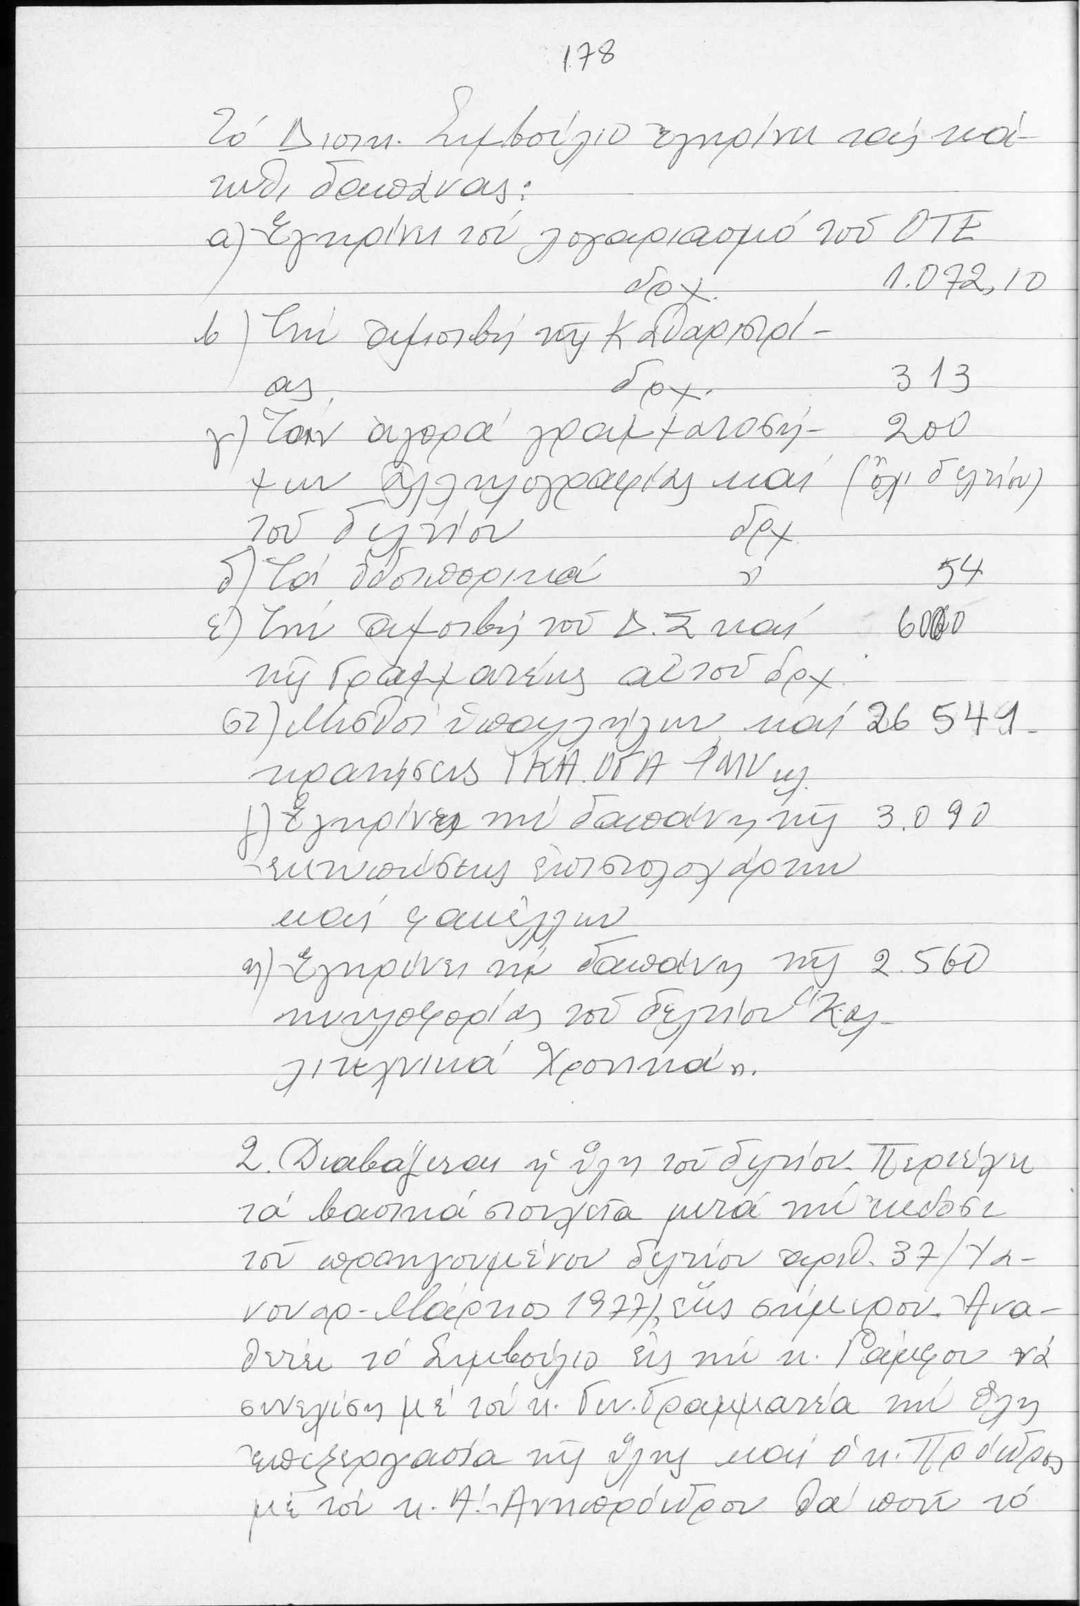 178
Τό Διοικ. Συμβούλιο ἐγκρίνει τάς κά-
τωθι δαπάνας:
α) Ἐγκρίνει τόν λογαριασμό τοῦ ΟΤΕ
δρχ. 1.072,10
β) Τήν ἀμοιβή τῆς Καθαριστρί-
ας δρχ. 313
γ) Τήν ἀγορά γραμματοσή- 200
μων ἀλληλογραφίας καί (ὄχι δελτίου)
τοῦ δελτίου δρχ
δ) Τά ὁδοιπορικά " 54
ε) Τήν ἀμοιβή τοῦ Δ.Σ καί 6000
τῆς Γραμματέως αὐτοῦ δρχ.
στ) Μισθοί ὑπαλλήλων καί 26 549
κρατήσεις ΙΚΑ. ΟΓΑ ΦΜΥ κλ.
ζ) Ἐγκρίνει τήν δαπάνη τῆς 3.090
ἐκτυπώσεως ἐπιστολοχάρτων
καί φακέλλων
η) Ἐγκρίνει τήν δαπάνη τῆς 2.560
κυκλοφορίας τοῦ δελτίου "Καλ-
λιτεχνικά Χρονικά".
2. Διαβάζεται ἡ ὕλη τοῦ δελτίου. Περιέχει
τά βασικά στοιχεῖα μετά τήν ἔκδοση
τοῦ προηγουμένου δελτίου ἀριθ. 37/Ἰα-
νουαρ-Μάρτιος 1977/, ἕως σήμερον. Ἀνα-
θέτει τό Συμβούλιο εἰς τήν κ. Ράμφου νά
συνεχίση μέ τόν κ. Γεν. Γραμματέα τήν ὅλη
ἐπεξεργασία τῆς ὕλης καί ὁ κ. Πρόεδρος
μέ τόν κ. Α! Ἀντιπρόεδρον θά ποῦν τό